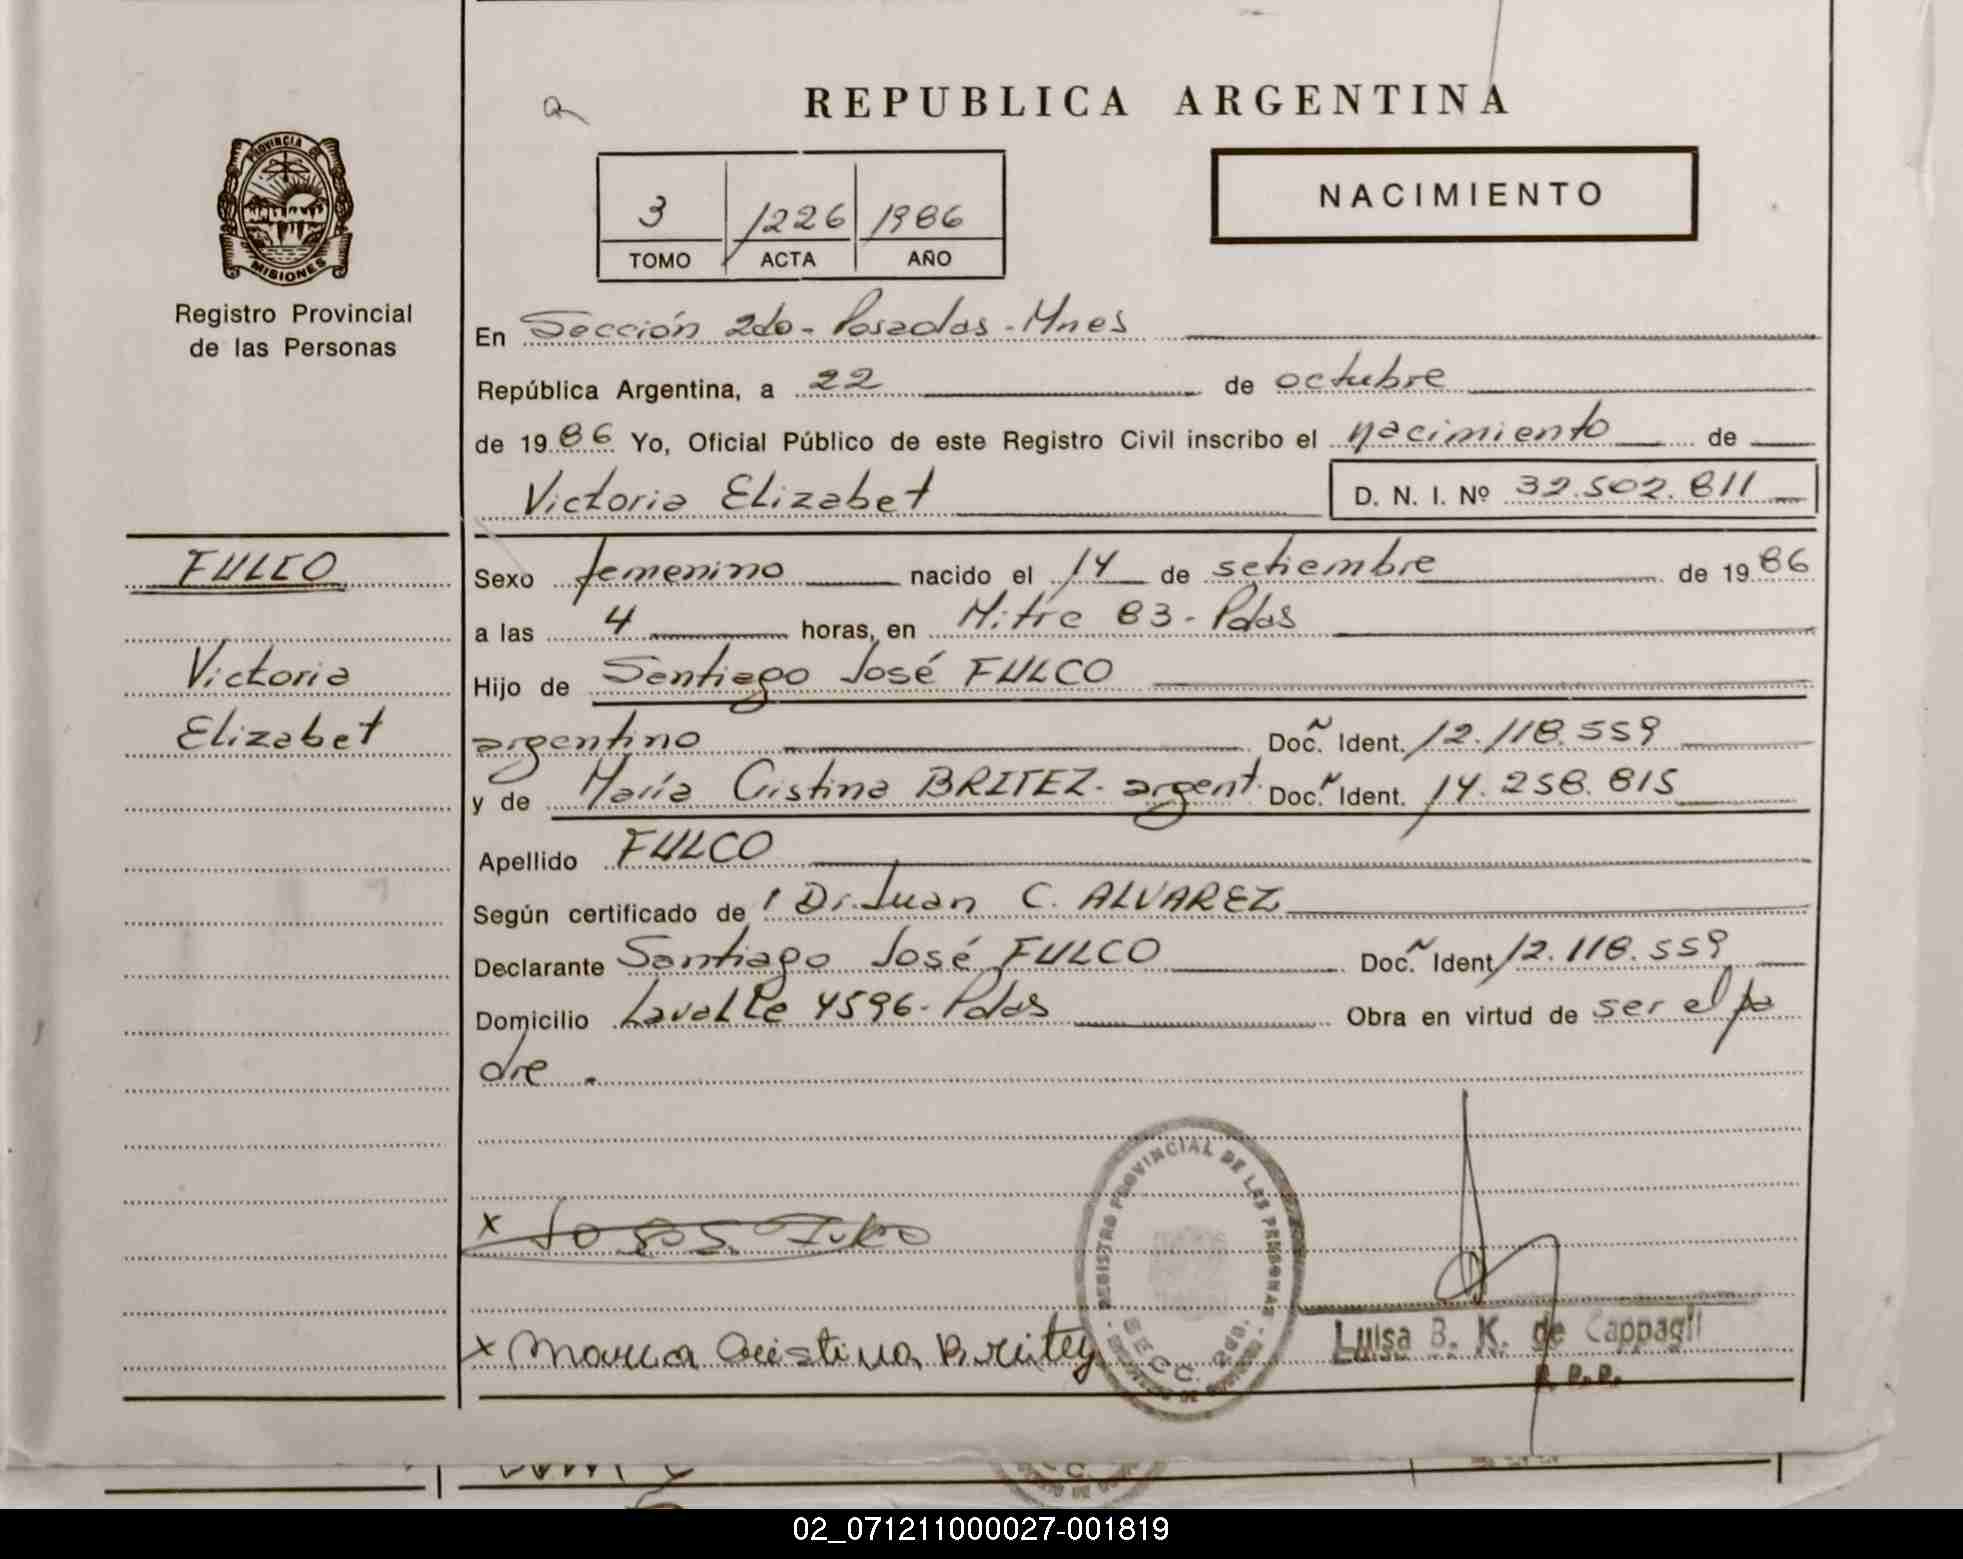 REPUBLICA ARGENTINA
NACIMIENTO
3 1226 1986
TOMO ACTA AÑO
PROVINCIA DE
MISIONES
Registro Provincial
de las Personas
En Sección 2do - Posadas - Mnes
República Argentina, a 22 de octubre
de 1986 Yo, Oficial Público de este Registro Civil inscribo el nacimiento de
Victoria Elizabet D. N. I. Nº 32.502.811
FULCO
Victoria
Elizabet
Sexo femenino nacido el 14 de setiembre de 1986
a las 4 horas, en Mitre 83 - Pdas
Hijo de Santiago José FULCO
argentino Doc. Ident. 12.118.559
y de María Cristina BRITEZ - argent. Doc. Ident. 14.258.815
Apellido FULCO
Según certificado de Dr. Juan C. ALVAREZ
Declarante Santiago José FULCO Doc. Ident 12.118.559
Domicilio Lavalle 4596 - Pdas Obra en virtud de ser el pa
dre.
x
x Maria Cristina Britez
REGISTRO PROVINCIAL DE LAS PERSONAS
SECC. 2do.
Luisa B. K. de Cappagli
02_071211000027-001819